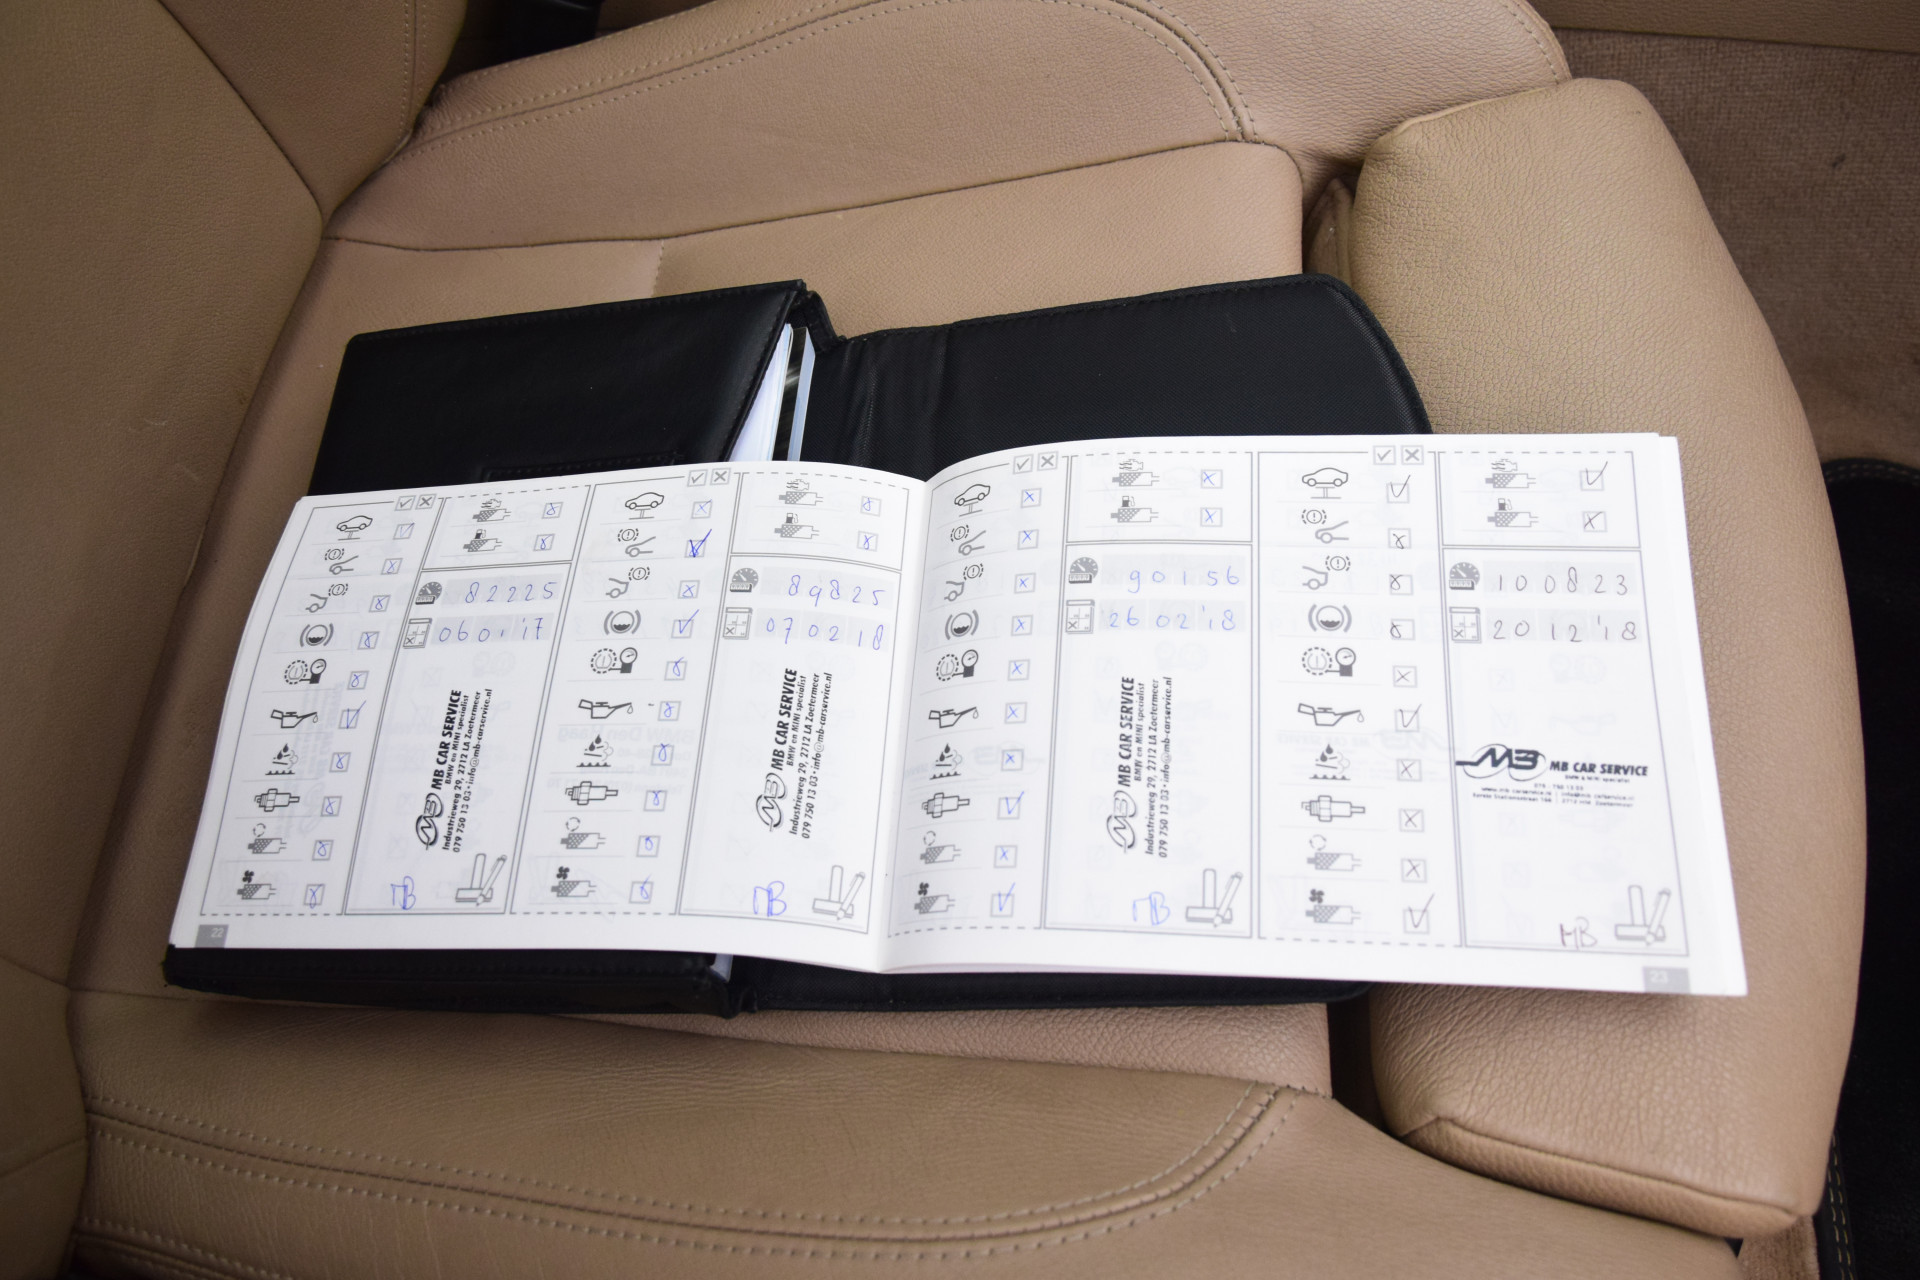 82225
0601'17
MB CAR SERVICE
BMW en MINI specialist
Industrieweg 29, 2712 LA Zoetermeer
079 750 13 03 · info@mb-carservice.nl
MB
22
89825
070218
MB CAR SERVICE
BMW en MINI specialist
Industrieweg 29, 2712 LA Zoetermeer
079 750 13 03 · info@mb-carservice.nl
MB
90156
2602'18
MB CAR SERVICE
BMW en MINI specialist
Industrieweg 29, 2712 LA Zoetermeer
079 750 13 03 · info@mb-carservice.nl
MB
100823
2012'18
MB MB CAR SERVICE
MB
23